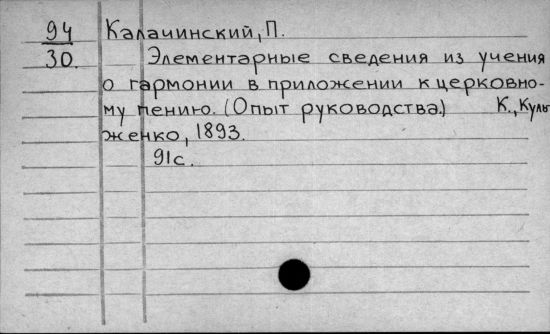 94 Калачинский, П.
30. Элементарные сведения из учения
о гармонии в приложении к церковно-
му пению. (Опыт руководства.) К., Куль
женко, 1893.
91с.